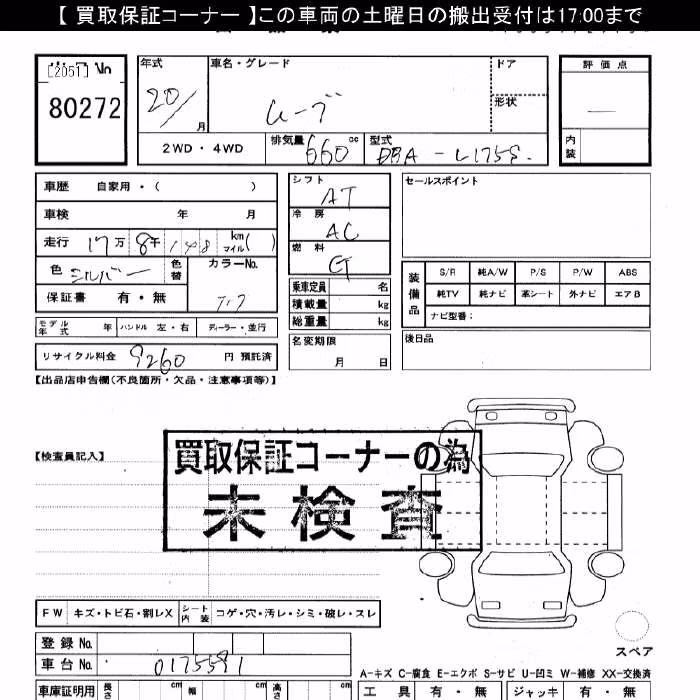 【 買取保証コーナー 】この車両の土曜日の搬出受付は17:00まで
[2051] No
80272
年式 20/ 月
車名・グレード ムーブ
ドア
形状
2WD ・ 4WD
排気量 660 cc
型式 DBA - L175S.
評価点
—
内装
車歴 自家用・( )
車検 年 月
走行 17万 8千 148 km マイル( )
色 シルバー 色替
カラーNo. T17
保証書 有・無
モデル年式 年 ハンドル 左・右 ディーラー・並行
リサイクル料金 9260 円 預託済
シフト AT
冷房 AC
燃料 G
乗車定員 名
積載量 kg
総重量 kg
名変期限 月 日
セールスポイント
装備品
S/R 純A/W P/S P/W ABS
純TV 純ナビ 革シート 外ナビ エアB
ナビ型番:
後日品
【出品店申告欄(不良箇所・欠品・注意事項等)】
【検査員記入】
買取保証コーナーの為
未検査
FW キズ・トビ石・割レX シート内装 コゲ・穴・汚レ・シミ・破レ・スレ
登録 No.
車台 No. 0175591
スペア
A-キズ C-腐食 E-エクボ S-サビ U-凹ミ W-補修 XX-交換済
車庫証明用 長さ cm 幅 cm 高さ cm
工具 有・無 ジャッキ 有・無